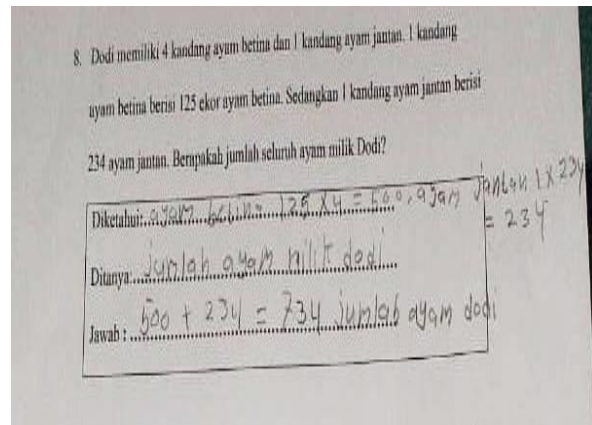 8. Dodi memiliki 4 kandang ayam betina dan 1 kandang ayam jantan. 1 kandang
ayam betina berisi 125 ekor ayam betina. Sedangkan 1 kandang ayam jantan berisi
234 ayam jantan. Berapakah jumlah seluruh ayam milik Dodi?
Diketahui:..ayam betina 125 x 4 = 500, ayam jantan 1 x 234
= 234
Ditanya:..jumlah ayam milik dodi
Jawab : 500 + 234 = 734 jumlab ayam dodi